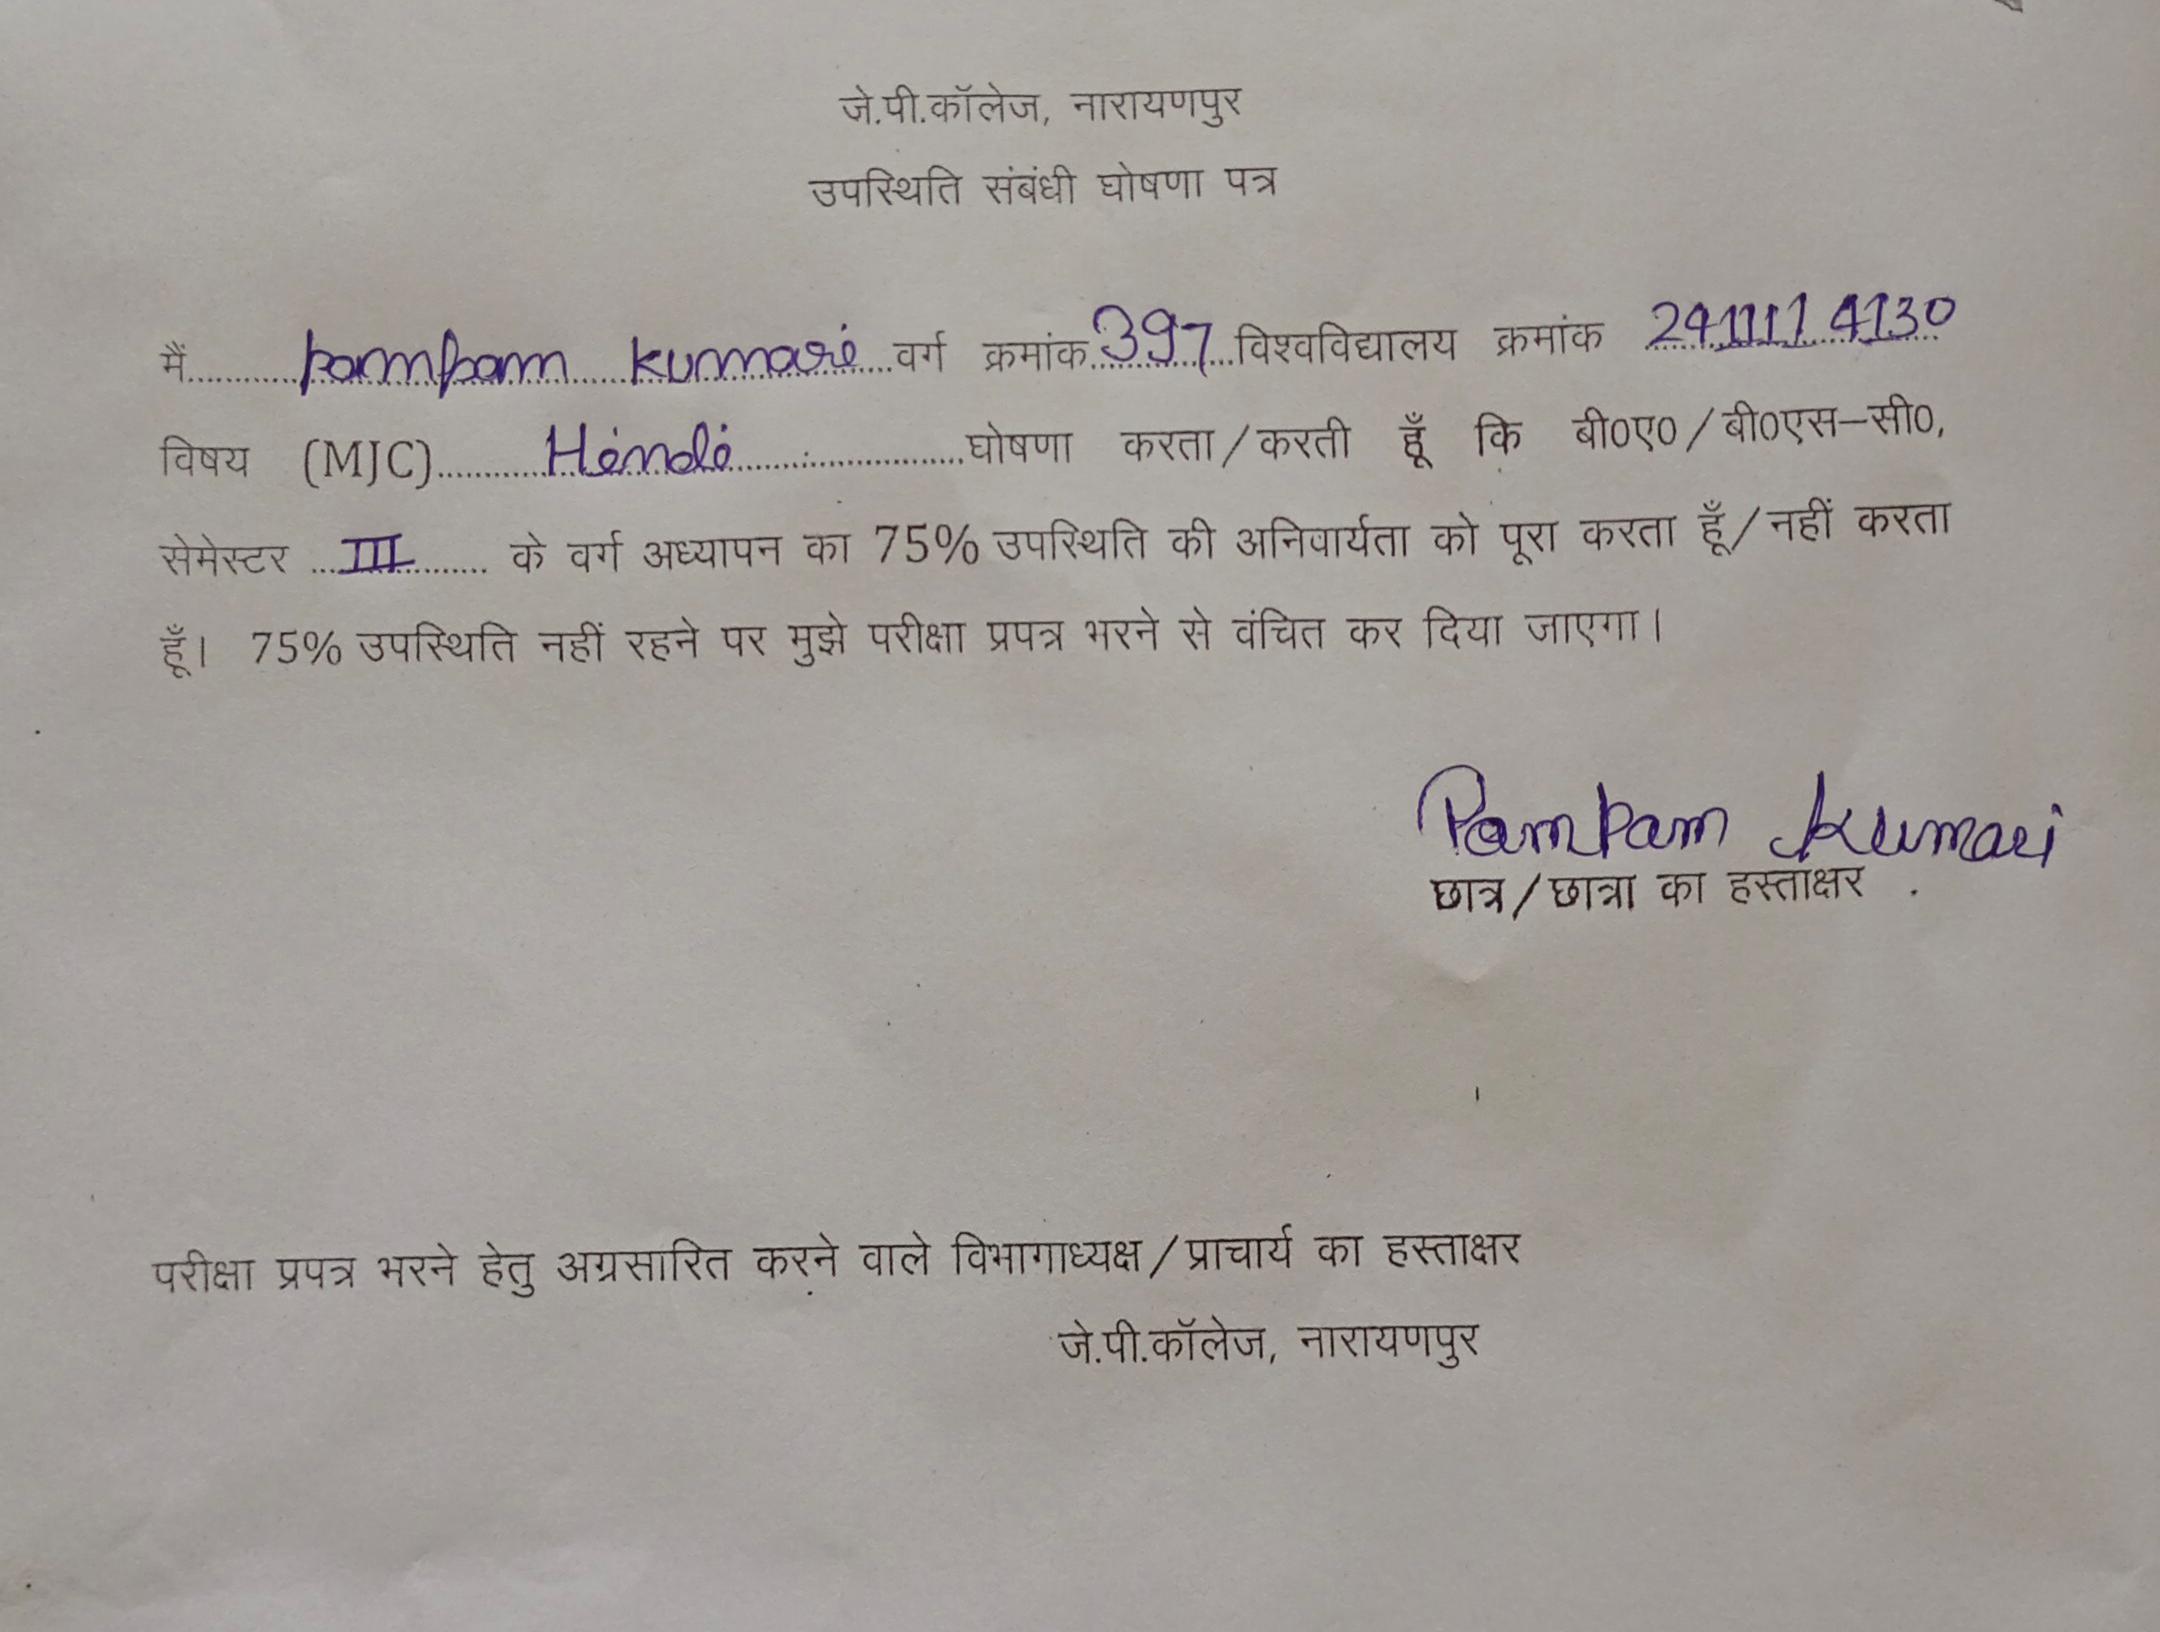 जे.पी.कॉलेज, नारायणपुर
उपस्थिति संबंधी घोषणा पत्र
मैं............pampam kumari....वर्ग क्रमांक.397..विश्वविद्यालय क्रमांक 2411114130
विषय (MJC).......Hindi..................घोषणा करता/करती हूँ कि बी०ए०/बी०एस–सी०,
सेमेस्टर ...III........ के वर्ग अध्यापन का 75% उपस्थिति की अनिवार्यता को पूरा करता हूँ/नहीं करता
हूँ। 75% उपस्थिति नहीं रहने पर मुझे परीक्षा प्रपत्र भरने से वंचित कर दिया जाएगा।
Pampam Kumari
छात्र/छात्रा का हस्ताक्षर
परीक्षा प्रपत्र भरने हेतु अग्रसारित करने वाले विभागाध्यक्ष/प्राचार्य का हस्ताक्षर
जे.पी.कॉलेज, नारायणपुर